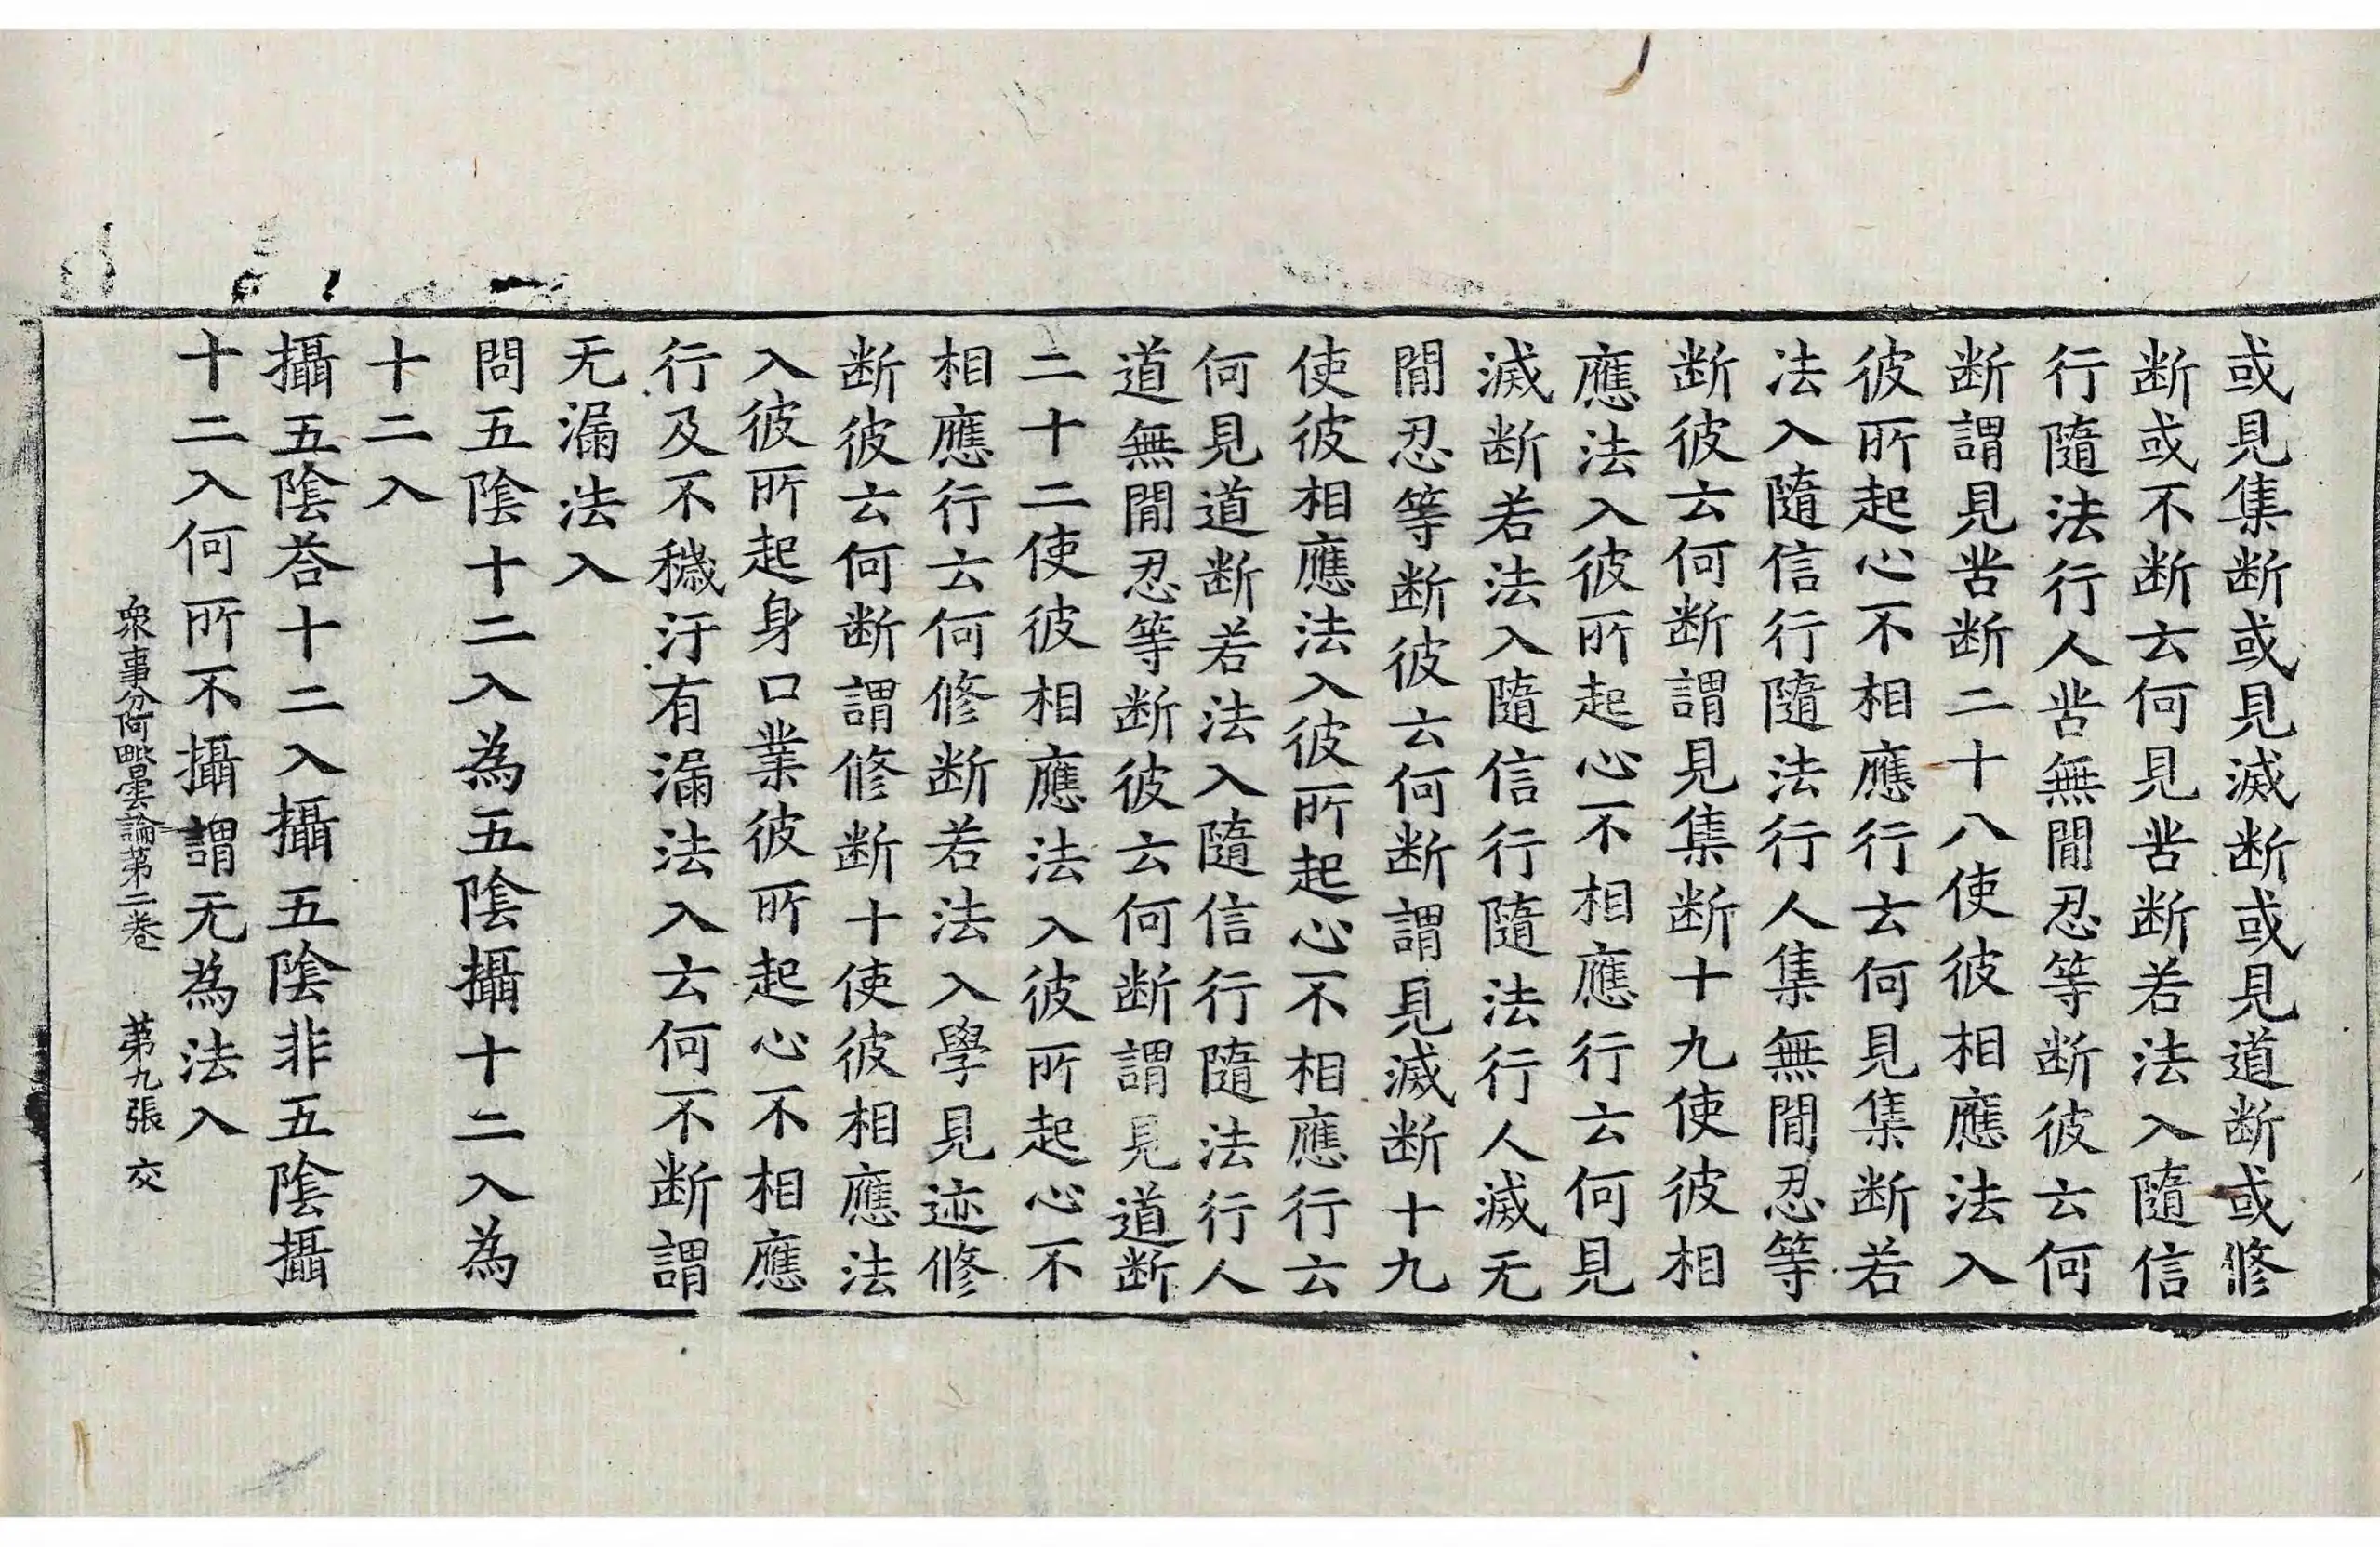 或見集断或見滅断或見道断或修
断或不断云何見苦断若法入隨信
行隨法行人苦無閒忍等断彼云何
断謂見苦断二十八使彼相應法入
彼所起心不相應行云何見集断若
法入隨信行隨法行人集無閒忍等
断彼云何断謂見集断十九使彼相
應法入彼所起心不相應行云何見
滅断若法入隨信行隨法行人滅无
閒忍等断彼云何断謂見滅断十九
使彼相應法入彼所起心不相應行云
何見道断若法入隨信行隨法行人
道無閒忍等断彼云何断謂見道断
二十二使彼相應法入彼所起心不
相應行云何修断若法入學見迹修
断彼云何断謂修断十使彼相應法
入彼所起身口業彼所起心不相應
行及不穢汙有漏法入云何不断謂
无漏法入
問五陰十二入為五陰攝十二入為
十二入
攝五陰荅十二入攝五陰非五陰攝
十二入何所不攝謂无為法入
衆事分阿毗曇論第二卷 第九張 交